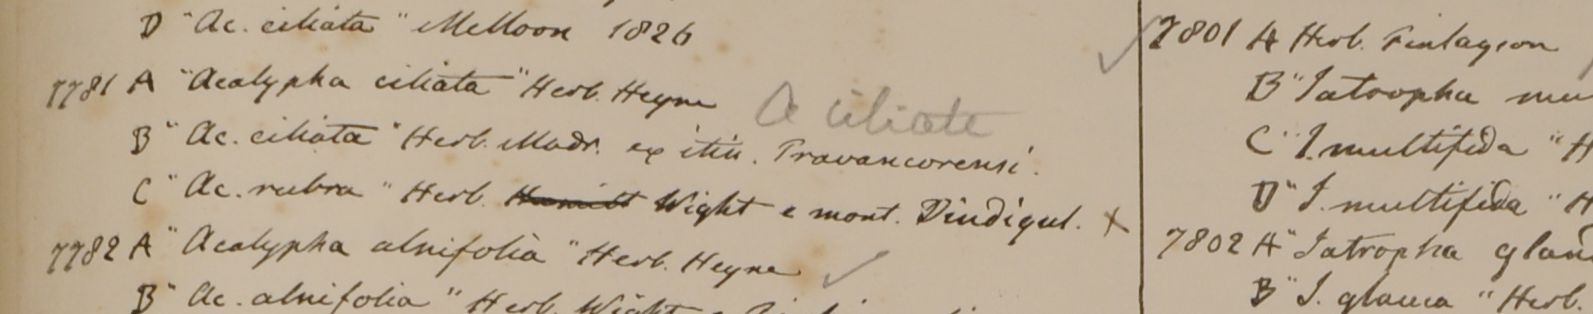 D "Ac. ciliata" Moulmein 1826
7781 A "Acalypha ciliata" Herb. Heyne
A ciliata
B "Ac. ciliata" Herb. Madr. ex itin. Travancorensi.
C "Ac. rubra" Herb. Wight e mont. Dindigul. x
7782 A "Acalypha alnifolia" Herb. Heyne
B "Ac. alnifolia" Herb. Wight
7801 A Herb. Finlayson
B "Jatropha mu
C "J. multifida" H
D "J. multifida" H
7802 A "Jatropha glan
B "J. glauca" Herb.